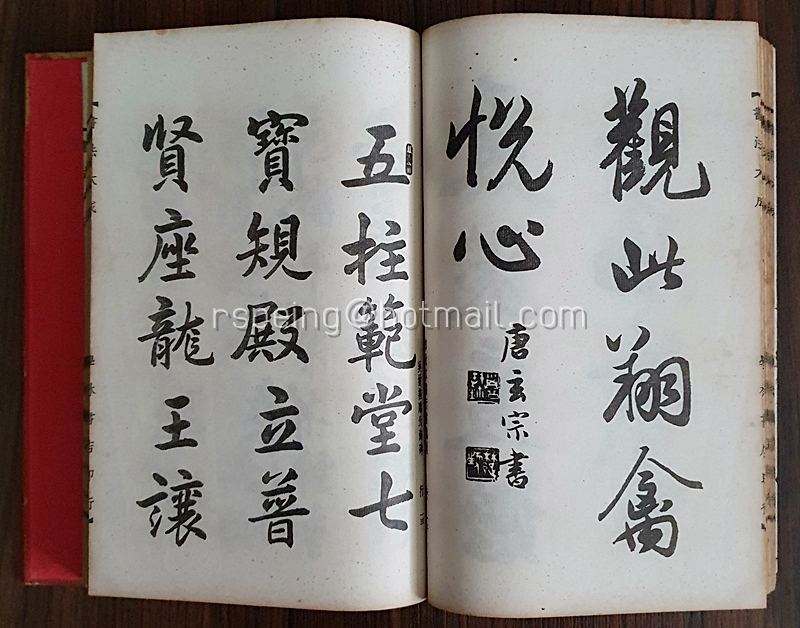 觀此翔禽
悅心
唐玄宗書
五柱範堂七
寶規殿立普
賢座龍王讓
rspeing@hotmail.com